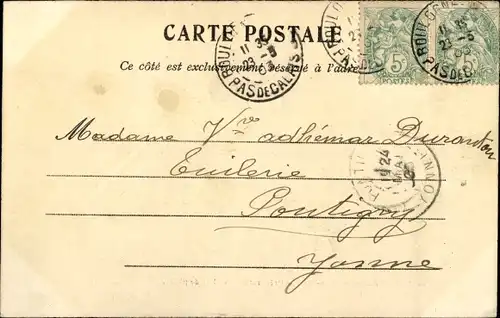 CARTE POSTALE
Ce côté est exclusivement réservé à l'adresse
BOULOGNE
11 35
23 -5
03
PAS DE CALAIS
5
5
Madame Vve adhémar Duranton
Tuilerie
Pontigny
Yonne
24
MAI